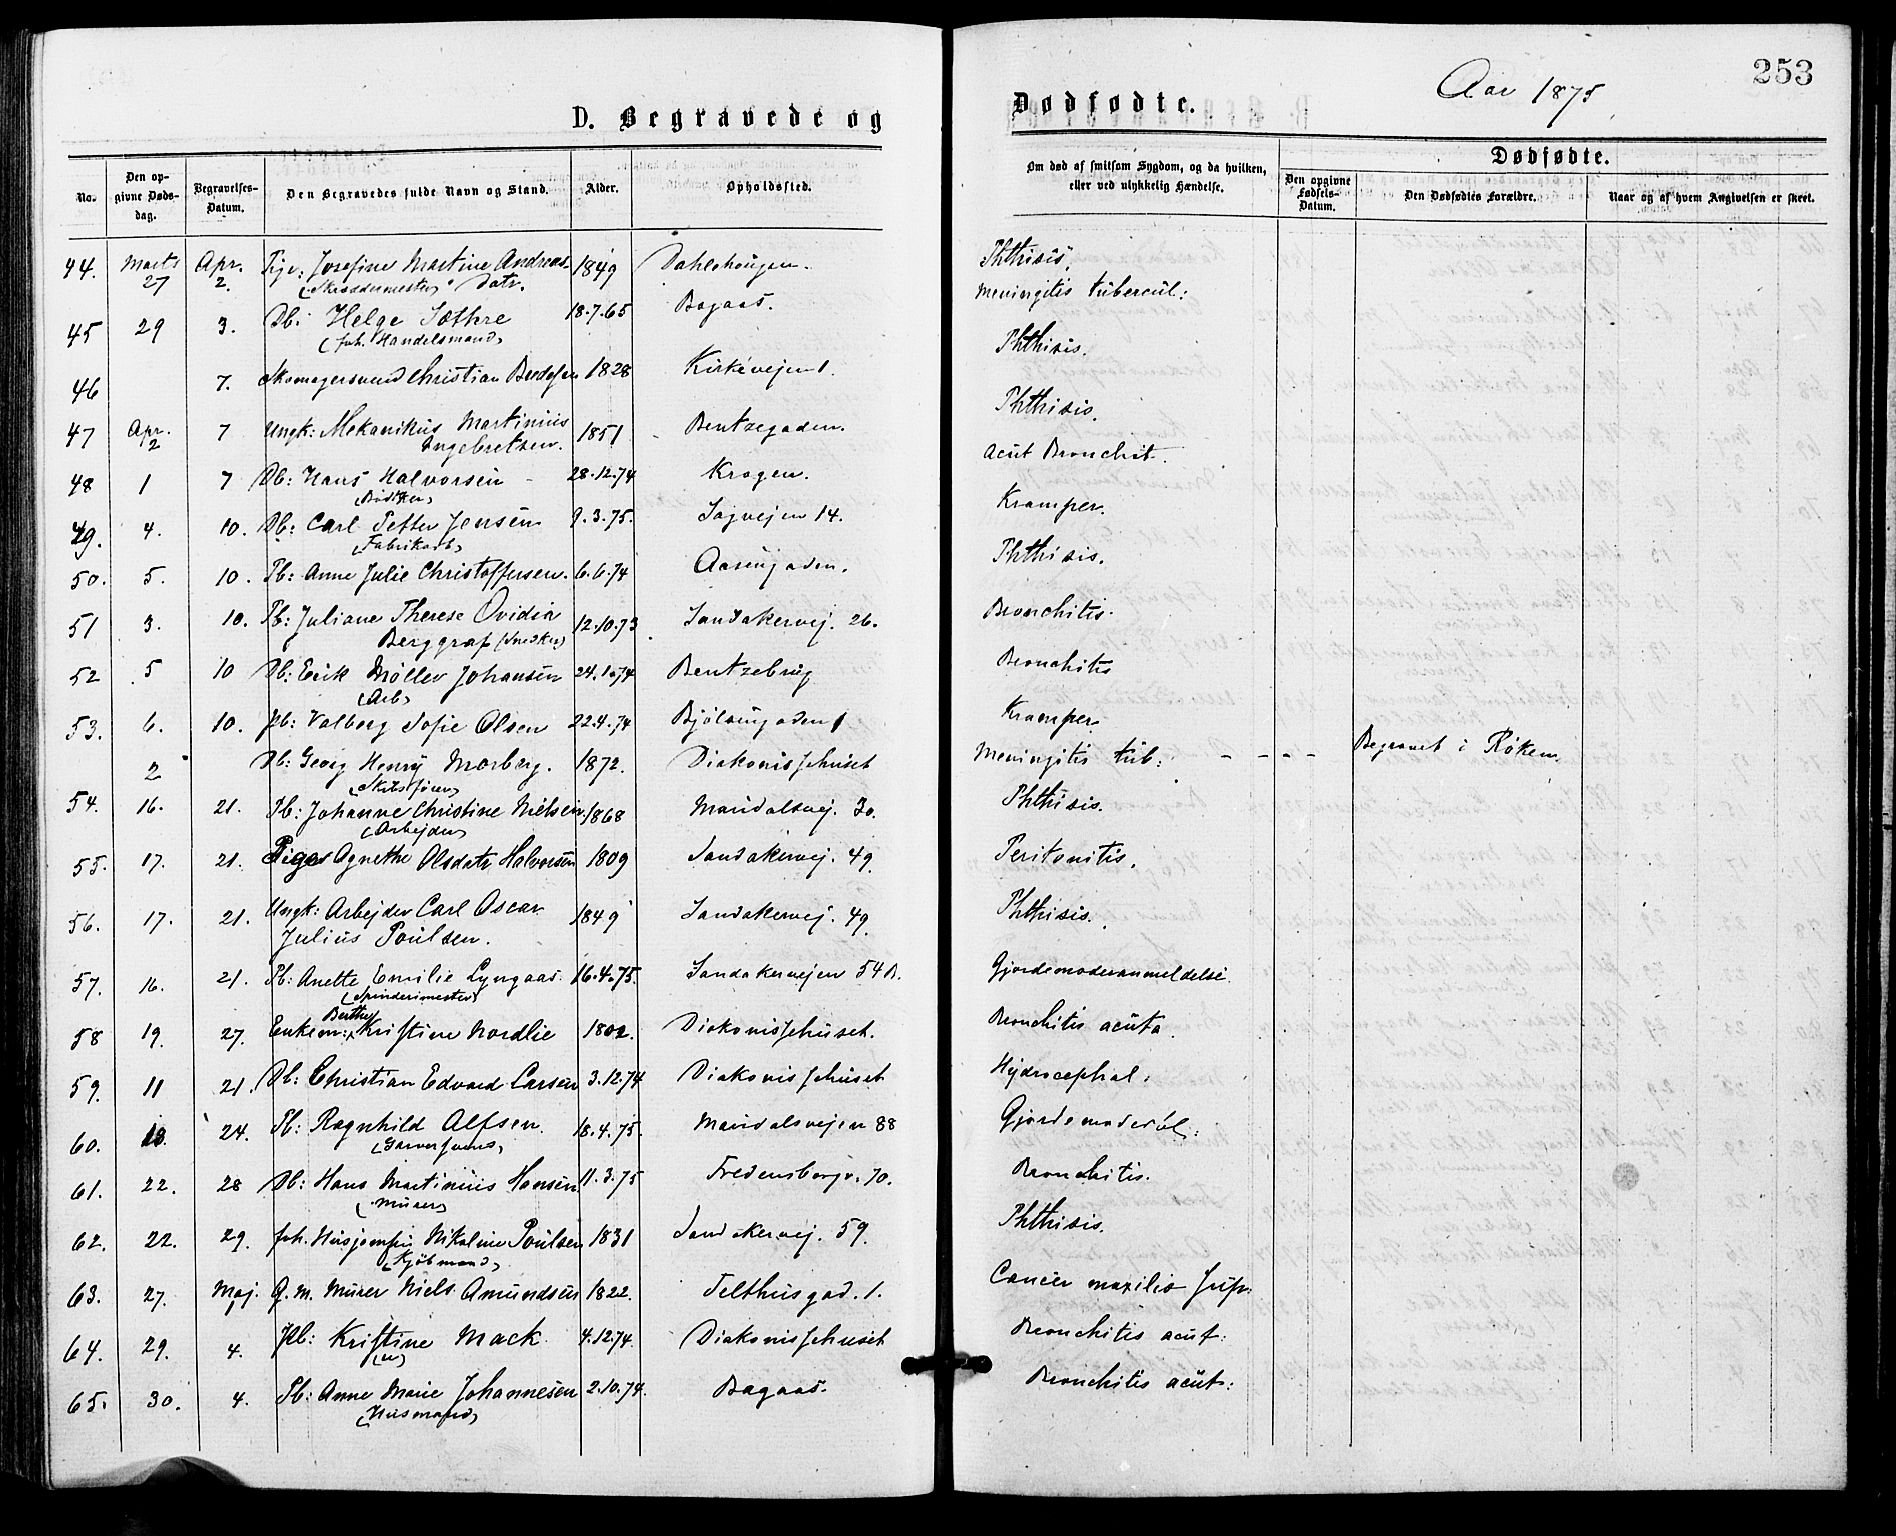 253
Aar 1875
D. Begravede og Dødfødte.
No.
Den opgivne Dødsdag.
Begravelses-Datum.
Den Begravedes fulde Navn og Stand.
Alder.
Opholdssted.
Om død af smitsom Sygdom, og da hvilken, eller ved ulykkelig Hændelse.
Dødfødte.
Den opgivne Fødsels-Datum.
Den Dødfødtes Forældre.
Naar og af hvem Angivelsen er skeet.
44. Marts 27 Apr. 2. Pige: Josefine Martine Andreas Datr. (Skræddermester) 1849 Dahlshougen. Phthisis.
45 29 3. Db: Helge Sæthre (fvh. Handelsmand) 18.7.65 Bagaas. Meningitis tubercul:
46 7. Skomagersvend Christian Bredesen 1828 Kirkevejen 1. Phthisis.
47 Apr. 2 7 Ungk: Mekanikus Martinius Ingebretsen. 1851 Bentzegaden. Phthisis.
48 1 7 Db: Hans Halvorsen (Bødker) 28.12.74 Krogen. Acut Bronchit.
49. 4. 10. Db: Carl Petter Jensen (Fabrikarb) 9.3.75. Sagvejen 14. Kramper.
50. 5. 10. Pb: Anne Julie Christoffersen. 6.6.74 Aasengaden. Phthisis.
51 3. 10. Pb: Juliane Therese Ovidia Berggraf (Snedker) 12.10.73 Sandakervej. 26. Bronchitis.
52 5 10 Db: Erik Møller Johansen (Arb) 24.10.74 Bentzebrug Bronchitis
53. 6. 10. Pb: Valborg Sofie Olsen 22.4.74 Bjølsengaden 1 Kramper.
2 Db: Georg Henry Morberg. (Skibsfører) 1872. Diakonissehuset Meningitis tub: - - - - Begravet i Røken.
54. 16. 21. Pb: Johanne Christine Nielsen (Arbejder) 1868 Maridalsvej. 30. Phthisis.
55. 17. 21. Pige Agnethe Olsdatr Halvorsen 1809 Sandakervej. 49. Peritonitis.
56. 17. 21. Ungk: Arbejder Carl Oscar Julius Poulsen. 1849 Sandakervej. 49. Phthisis.
57. 16. 21. Pb: Anette Emilie Lyngaas. (Spinderimester) 16.4.75. Sandakervejen 54 B. Gjordemoderanmeldelse.
58 19. 27. Enkem: Berthe Kristine Nordlie 1802. Diakonissehuset. Bronchitis acuta.
59. 11 21. Db: Christian Edvard Larsen 3.12.74 Diakonissehuset Hydrocephal.
60. 18. 24. Pb: Ragnhild Alfsen. (Garversvend) 18.4.75. Maridalsvejen 88 Gjordemoderbl:
61. 22. 28 Db: Hans Martinius Hansen. (Murer) 11.3.75 Fredensborgv. 70. Bronchitis.
62. 22. 29. fvh. Husjomfru Nikoline Poulsen (Kjøbmand) 1831 Sandakervej. 59. Phthisis.
63. 27. Maj. 1 G. m. Murer Niels Amundsen 1822. Telthusgad. 1. Cancer maxilio sup:
64. 29. 4. Pb: Kristine Mack (u) 4.12.74. Diakonissehuset Bronchitis acut:
65. 30. 4. Pb: Anne Marie Johannesen (Husmand) 2.10.74. Bagaas. Bronchitis acut: